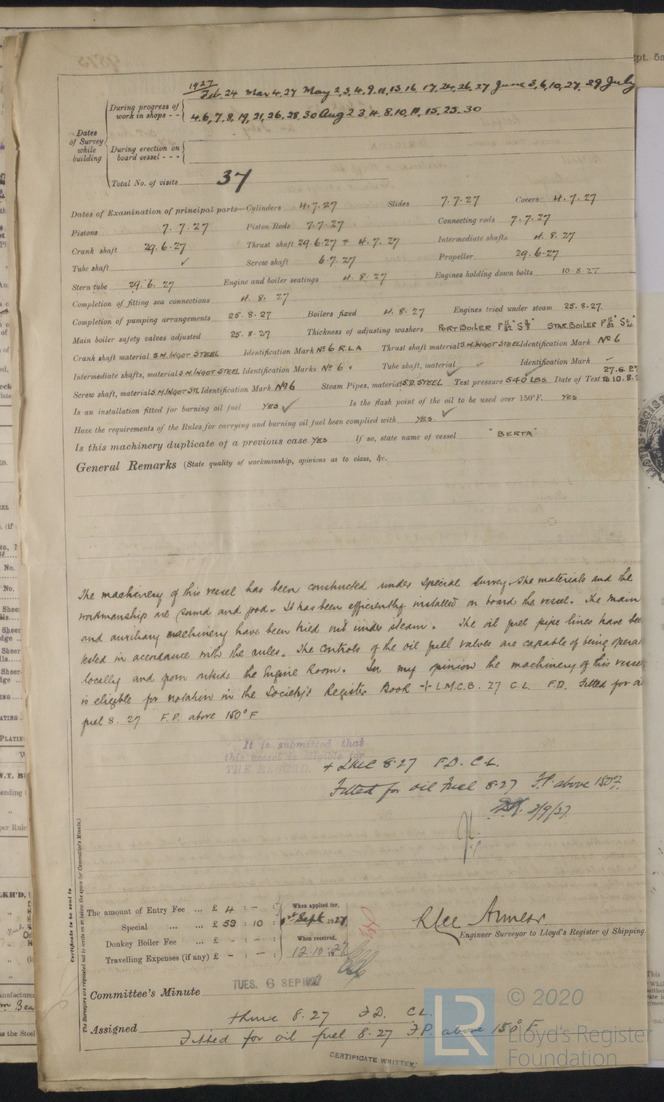 1927
Feb. 24 Mar 4, 27 May 2, 3, 4, 9, 11, 13, 16 17, 24, 26, 27 June 3, 6, 10, 27, 29 July
During progress of work in shops - - 4, 6, 7, 8, 19, 21, 26, 28, 30 Aug 2 3 4 8, 10, 11, 15, 25, 30
Dates of Survey while building
During erection on board vessel - - -
Total No. of visits 37
Dates of Examination of principal parts—Cylinders 4.7.27 Slides 7.7.27 Covers 4.7.27
Pistons 7.7.27 Piston Rods 7.7.27 Connecting rods 7.7.27
Crank shaft 29.6.27 Thrust shaft 29.6.27 & 4.7.27 Intermediate shafts 4.8.27
Tube shaft ✓ Screw shaft 6.7.27 Propeller 29.6.27
Stern tube 29.6.27 Engine and boiler seatings 4.8.27 Engines holding down bolts 10.8.27
Completion of fitting sea connections 4.8.27
Completion of pumping arrangements 25.8.27 Boilers fixed 4.8.27 Engines tried under steam 25.8.27
Main boiler safety valves adjusted 25.8.27 Thickness of adjusting washers PORT BOILER STAR BOILER
Crank shaft material S.M. INGOT STEEL Identification Mark No 6 R.L.A Thrust shaft material S.M. INGOT STEEL Identification Mark No 6
Intermediate shafts, material S.M. INGOT STEEL Identification Marks No 6 Tube shaft, material ✓ Identification Mark
Screw shaft, material S.M. INGOT STL Identification Mark No 6 Steam Pipes, material S.D. STEEL Test pressure 540 LBS Date of Test 27.6.27 TO 10.8.2
Is an installation fitted for burning oil fuel YES ✓ Is the flash point of the oil to be used over 150°F. YES
Have the requirements of the Rules for carrying and burning oil fuel been complied with YES ✓
Is this machinery duplicate of a previous case YES If so, state name of vessel "BERTA"
General Remarks (State quality of workmanship, opinions as to class, &c.
The machinery of this vessel has been constructed under special survey. The materials and the
workmanship are sound and good. It has been efficiently installed on board the vessel. The main
and auxiliary machinery have been tried out under steam. The oil fuel pipe lines have be
tested in accordance with the rules. The controls of the oil fuel valves are capable of being opera
locally and from outside the Engine Room. In my opinion the machinery of this vessel
is eligible for notation in the Society's Register Book + L.M.C.B. 27 C.L. F.D. Fitted for oi
fuel 8. 27 F.P. above 150°F
It is submitted that
this vessel is eligible for
THE RECORD. + LMC 8.27 F.D. C.L.
Fitted for oil fuel 8.27 F.P. above 150°F.
2/9/27
The amount of Entry Fee ... £ 4 : - : When applied for,
Special ... ... £ 59 : 10 : Sept 1927
Donkey Boiler Fee ... £ - : - : When received,
Travelling Expenses (if any) £ - : - : 12.10.27
Engineer Surveyor to Lloyd's Register of Shipping.
Committee's Minute TUES. 6 SEP 1927
Assigned + LMC 8.27 F.D. C.L.
Fitted for oil fuel 8.27 F.P. above 150°F
CERTIFICATE WRITTEN
© 2020
LR Lloyd's Register
Foundation